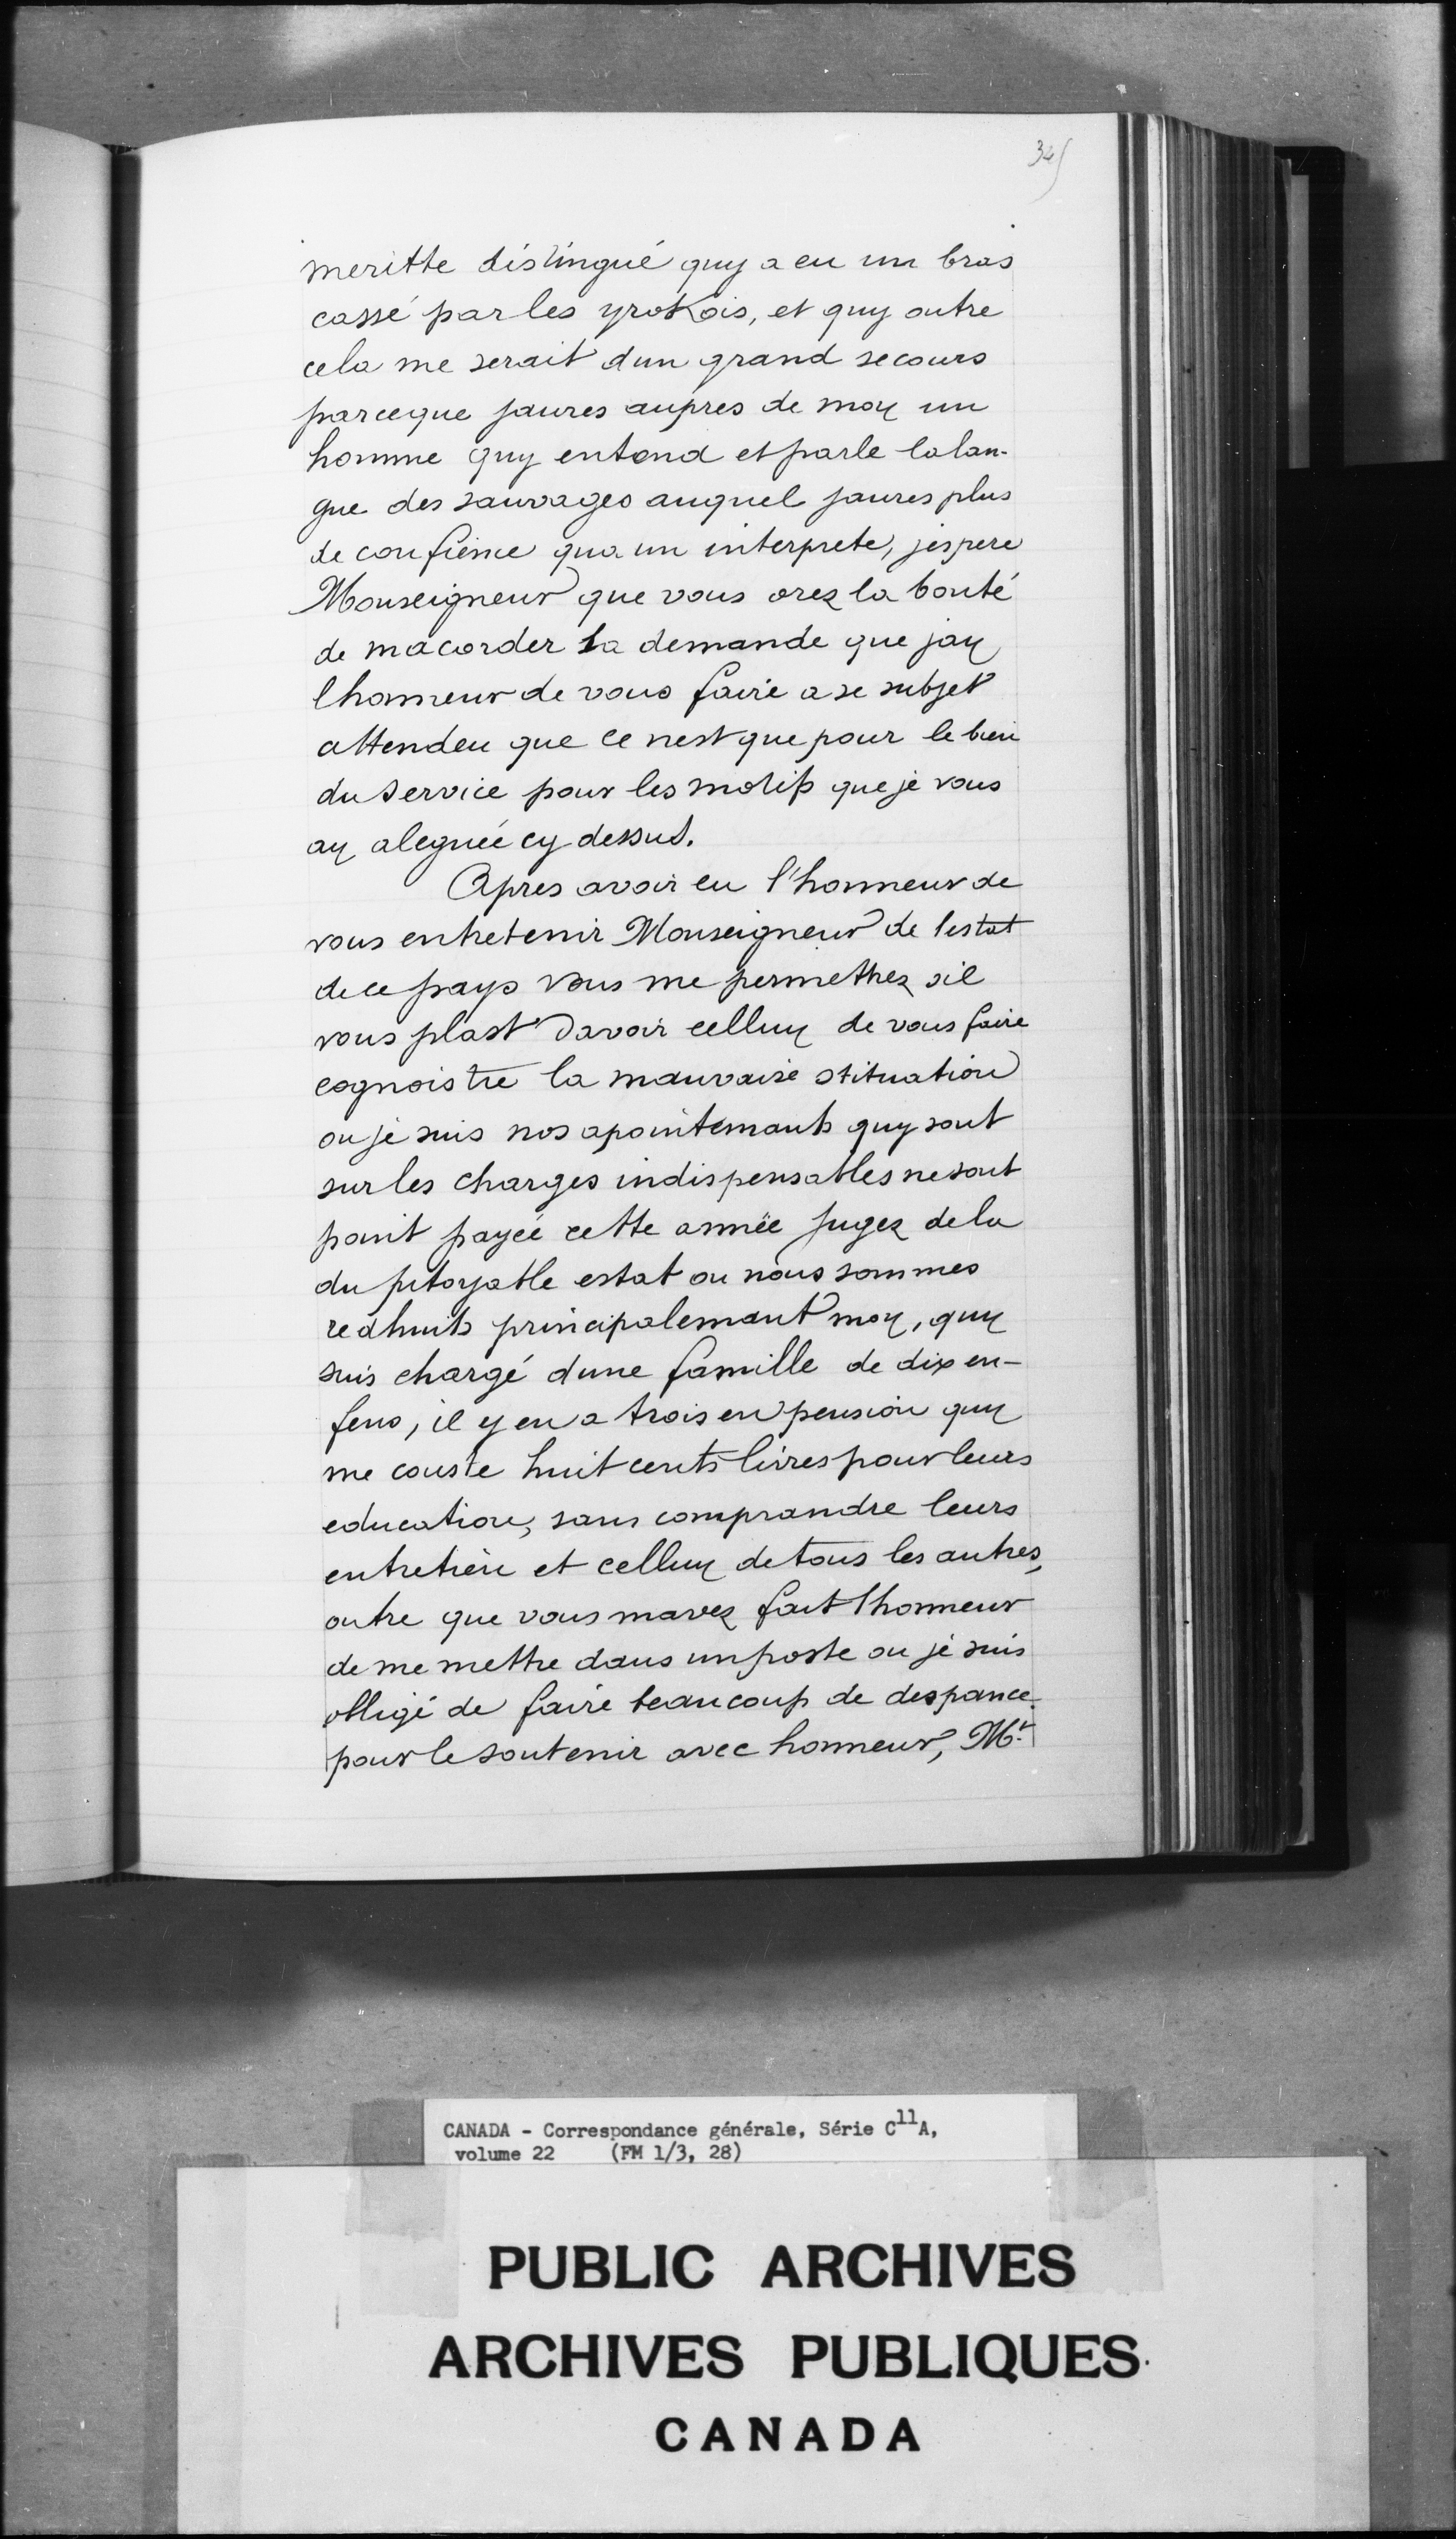 345
meritte distingué quy a eu un bras
cassé par les yroKois, et quy outre
cela me serait dun grand secours
parceque jaures aupres de moy un
homme quy entend et parle lalan-
gue des sauvages auquel jaures plus
de confience qua un interprete, jespere
Monseigneur que vous orez la bonté
de macorder la demande que jay
lhonneur de vous faire a se subjet
attendeu que ce nest que pour le bien
du service pour les motifs que je vous
ay aleguée cy dessus.
Apres avoir eu l'honneur de
vous entretenir Monseigneur de lestat
de ce pays vous me permettrez sil
vous plast davoir celluy de vous faire
cognoistre la mauvaise stituation
ou je suis nos apointemants quy sont
sur les charges indispensables ne sont
point payée cette année jugez dela
du pitoyable estat ou nous sommes
redhuits principalemant moy, quy
suis chargé dune famille de dix en-
fens, il y en a trois en pension quy
me couste huit cents livres pour leurs
education, sans comprandre leurs
entretien et celluy de tous les autres,
outre que vous mavez fait lhonneur
de me mettre dans un poste ou je suis
obligé de faire beaucoup de despance
pour le soutenir avec honneur, Mr.
CANADA - Correspondance générale, Série C11A,
volume 22 (FM 1/3, 28)
PUBLIC ARCHIVES
ARCHIVES PUBLIQUES
CANADA